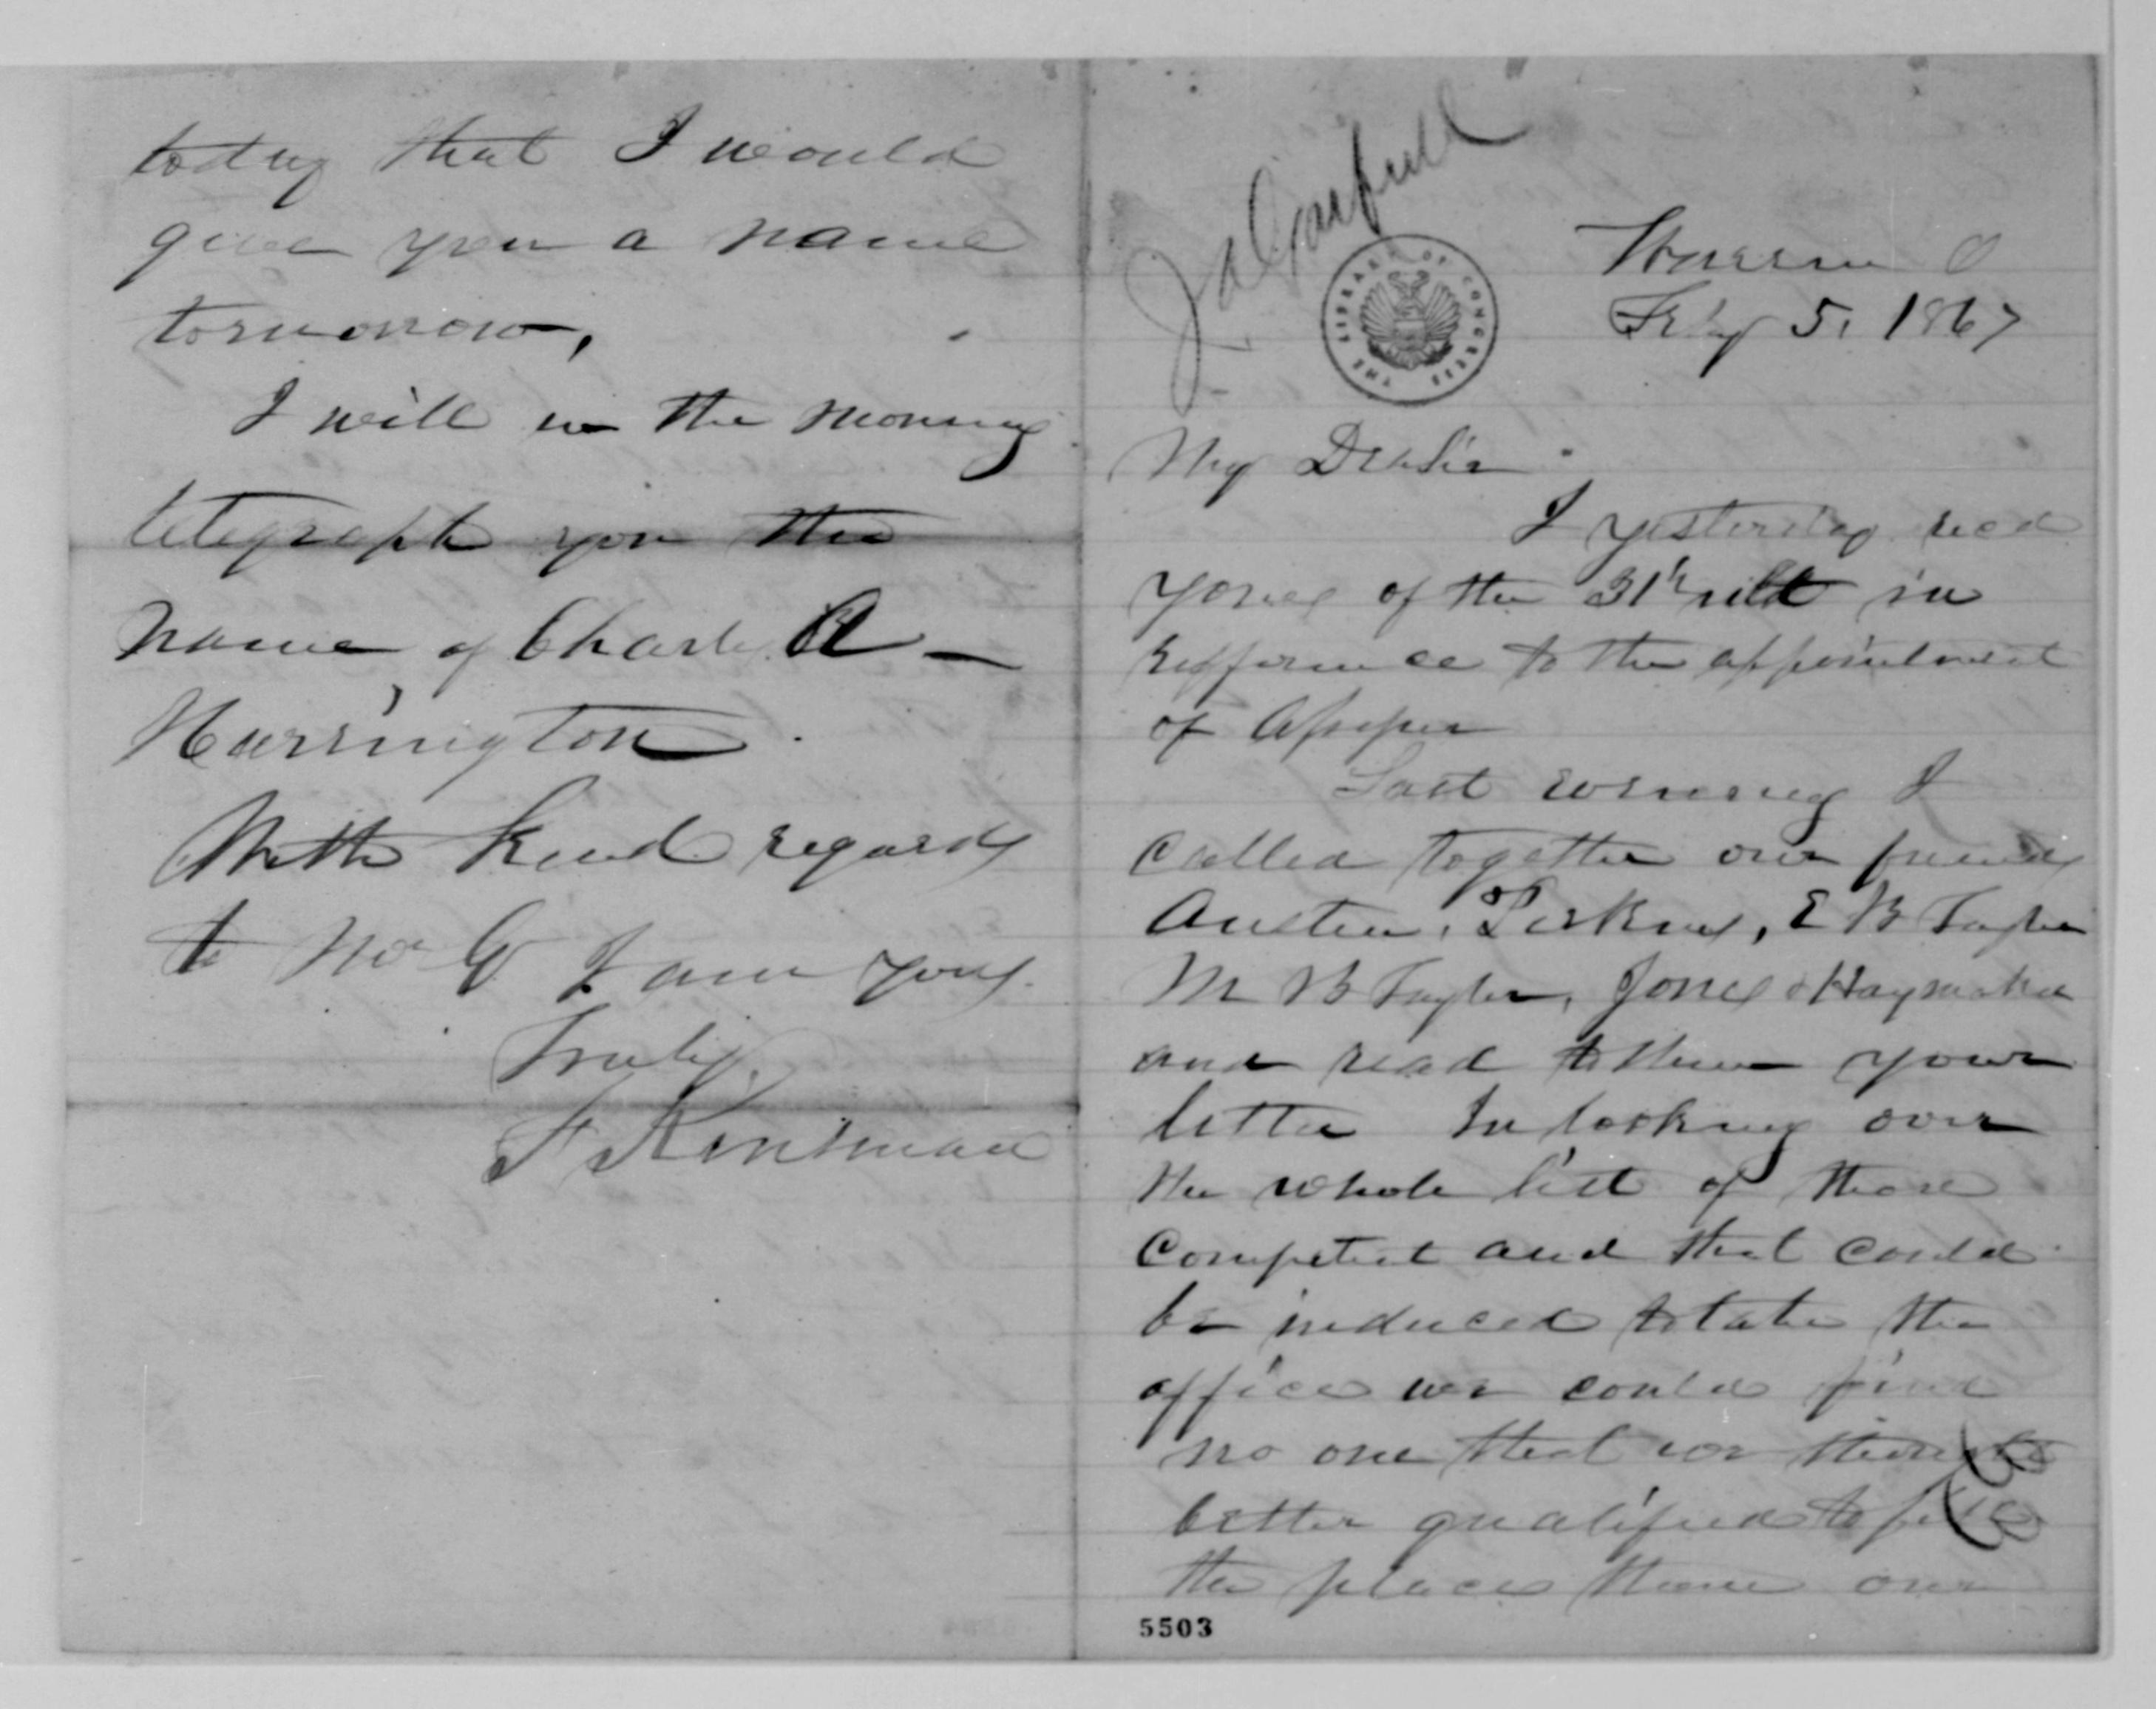 today that I would
give you a name
tomorrow,
I will in the morning
telegraph you the
name of Charles A
Harrington.
With kind regards
to Mrs G I am yours
Truly
F Kinsman
J A Garfield
THE LIBRARY OF CONGRESS
Warren O
Feby 5, 1867
My Dr Sir
I yesterday recd
yours of the 31st ult in
refference to the appointment
of Assessor
Last evening I
called together our friends
Austin, Perkins, E B Taylor
M B Taylor, Jones & Haymaker
and read to them your
letter In looking over
the whole list of those
Competent and that could
be induced to take the
office we could find
no one that we thought
better qualified to fill
the place than our
5503